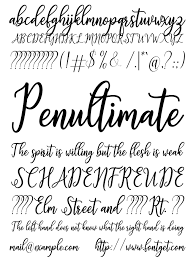 abcdefghijklmnopqrstuvwxyz
ABCDEFGHIJKLMNOPQRSTUVWXYZ
??????????(!#$%& /.|"*@:;)
Penultimate
The spirit is willing but the flesh is weak
SCHADENFREUDE
???? Elm Street and ???? Rt. ??
The left hand does not know what the right hand is doing
mail@example.com http://www.fontget.com